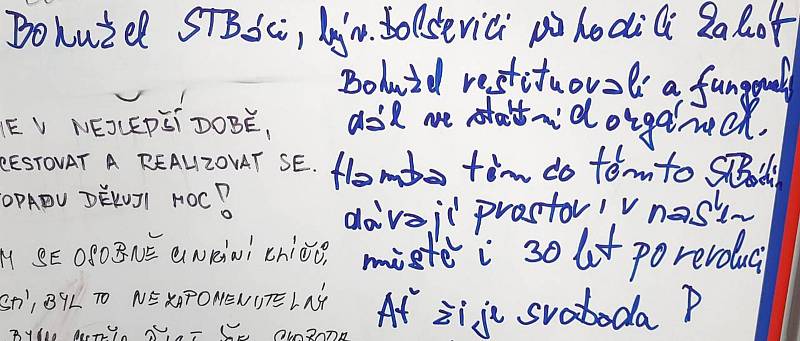 Bohužel STBáci, býv. bolševici převhodili kabát
Bohužel restituovali a fungovali
dál ve státních orgánech.
Hamba těm co těmto STBákům
dávají prostor i v našem
městě i 30 let po revoluci
Ať žije svoboda
JE V NEJLEPŠÍ DOBĚ,
CESTOVAT A REALIZOVAT SE.
OPADU DĚKUJI MOC!
M SE OSOBNĚ CINKÁNÍ KLÍČŮ,
BYL TO NEZAPOMENUTELNÝ
SVOBODA